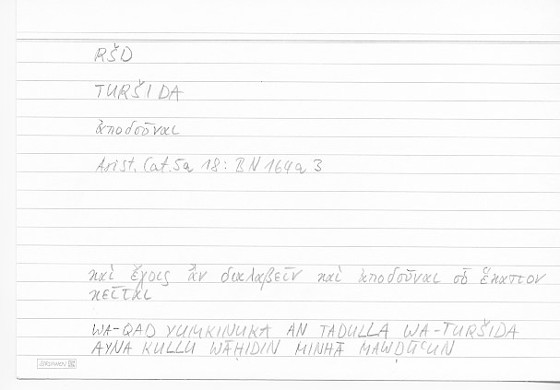 RŠD
TURŠIDA
ἀποδοῦναι
Arist. Cat. 5a 18: BN 164a 3
καὶ ἔχοις ἂν διαλαβεῖν καὶ ἀποδοῦναι οὗ ἕκαστον
κεῖται
WA-QAD YUMKINUKA AN TADULLA WA-TURŠIDA
AYNA KULLU WĀḤIDIN MINHĀ MAWḌŪʿUN